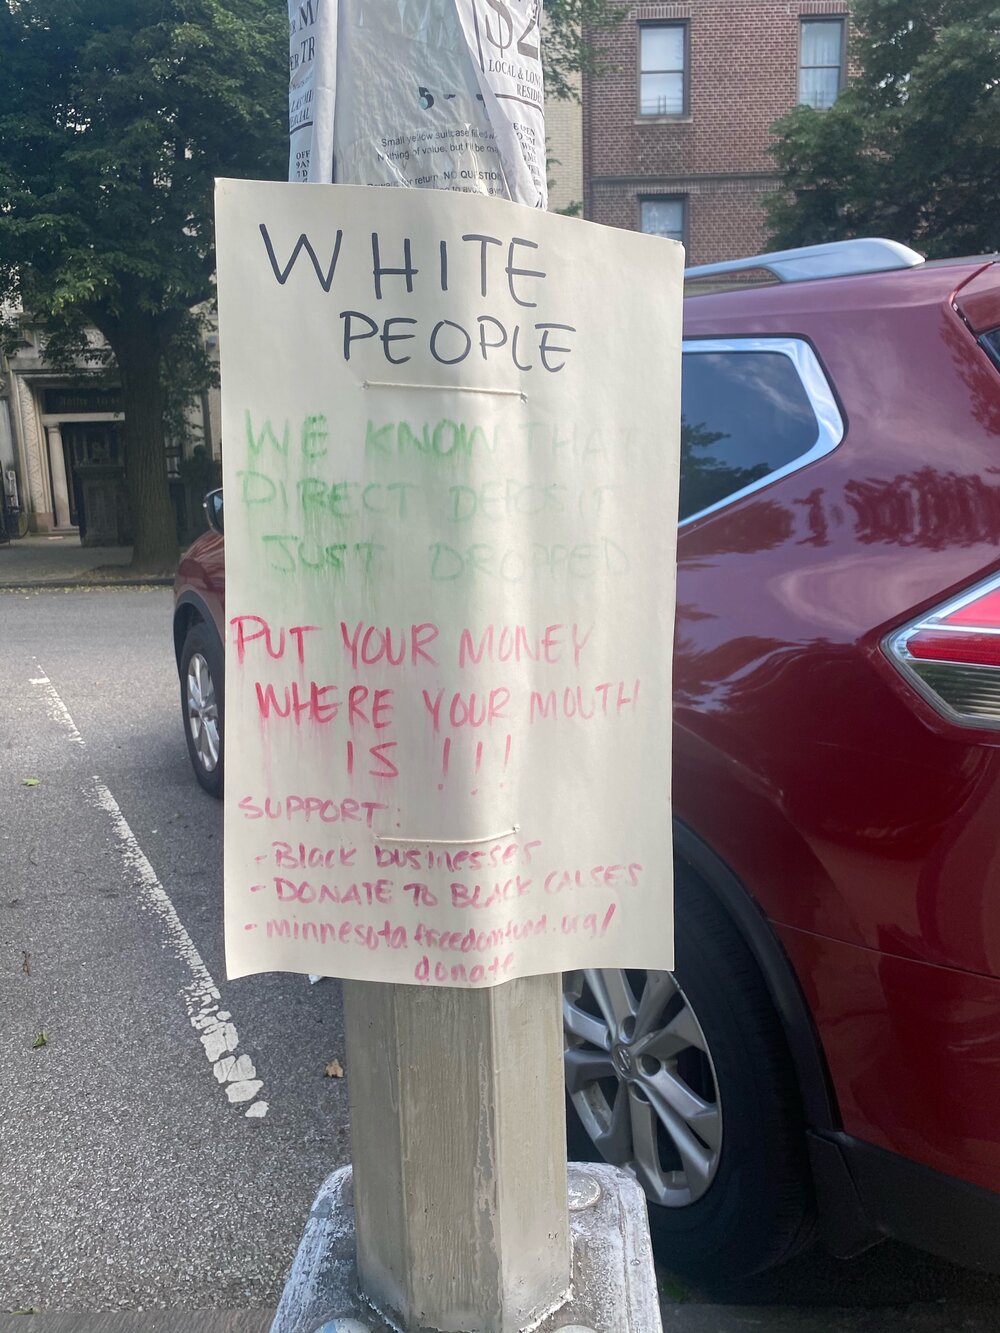 $2
LOCAL & LON
RESIDE
5 - -
Small yellow suitcase filled w
Nothing of value, but I'll be
for return. NO QUESTION
WHITE
PEOPLE
WE KNOW THAT
DIRECT DEPOSIT
JUST DROPPED
PUT YOUR MONEY
WHERE YOUR MOUTH
IS !!!
SUPPORT:
- Black businesses
- DONATE TO BLACK CAUSES
- minnesotafreedomfund.org/
donate